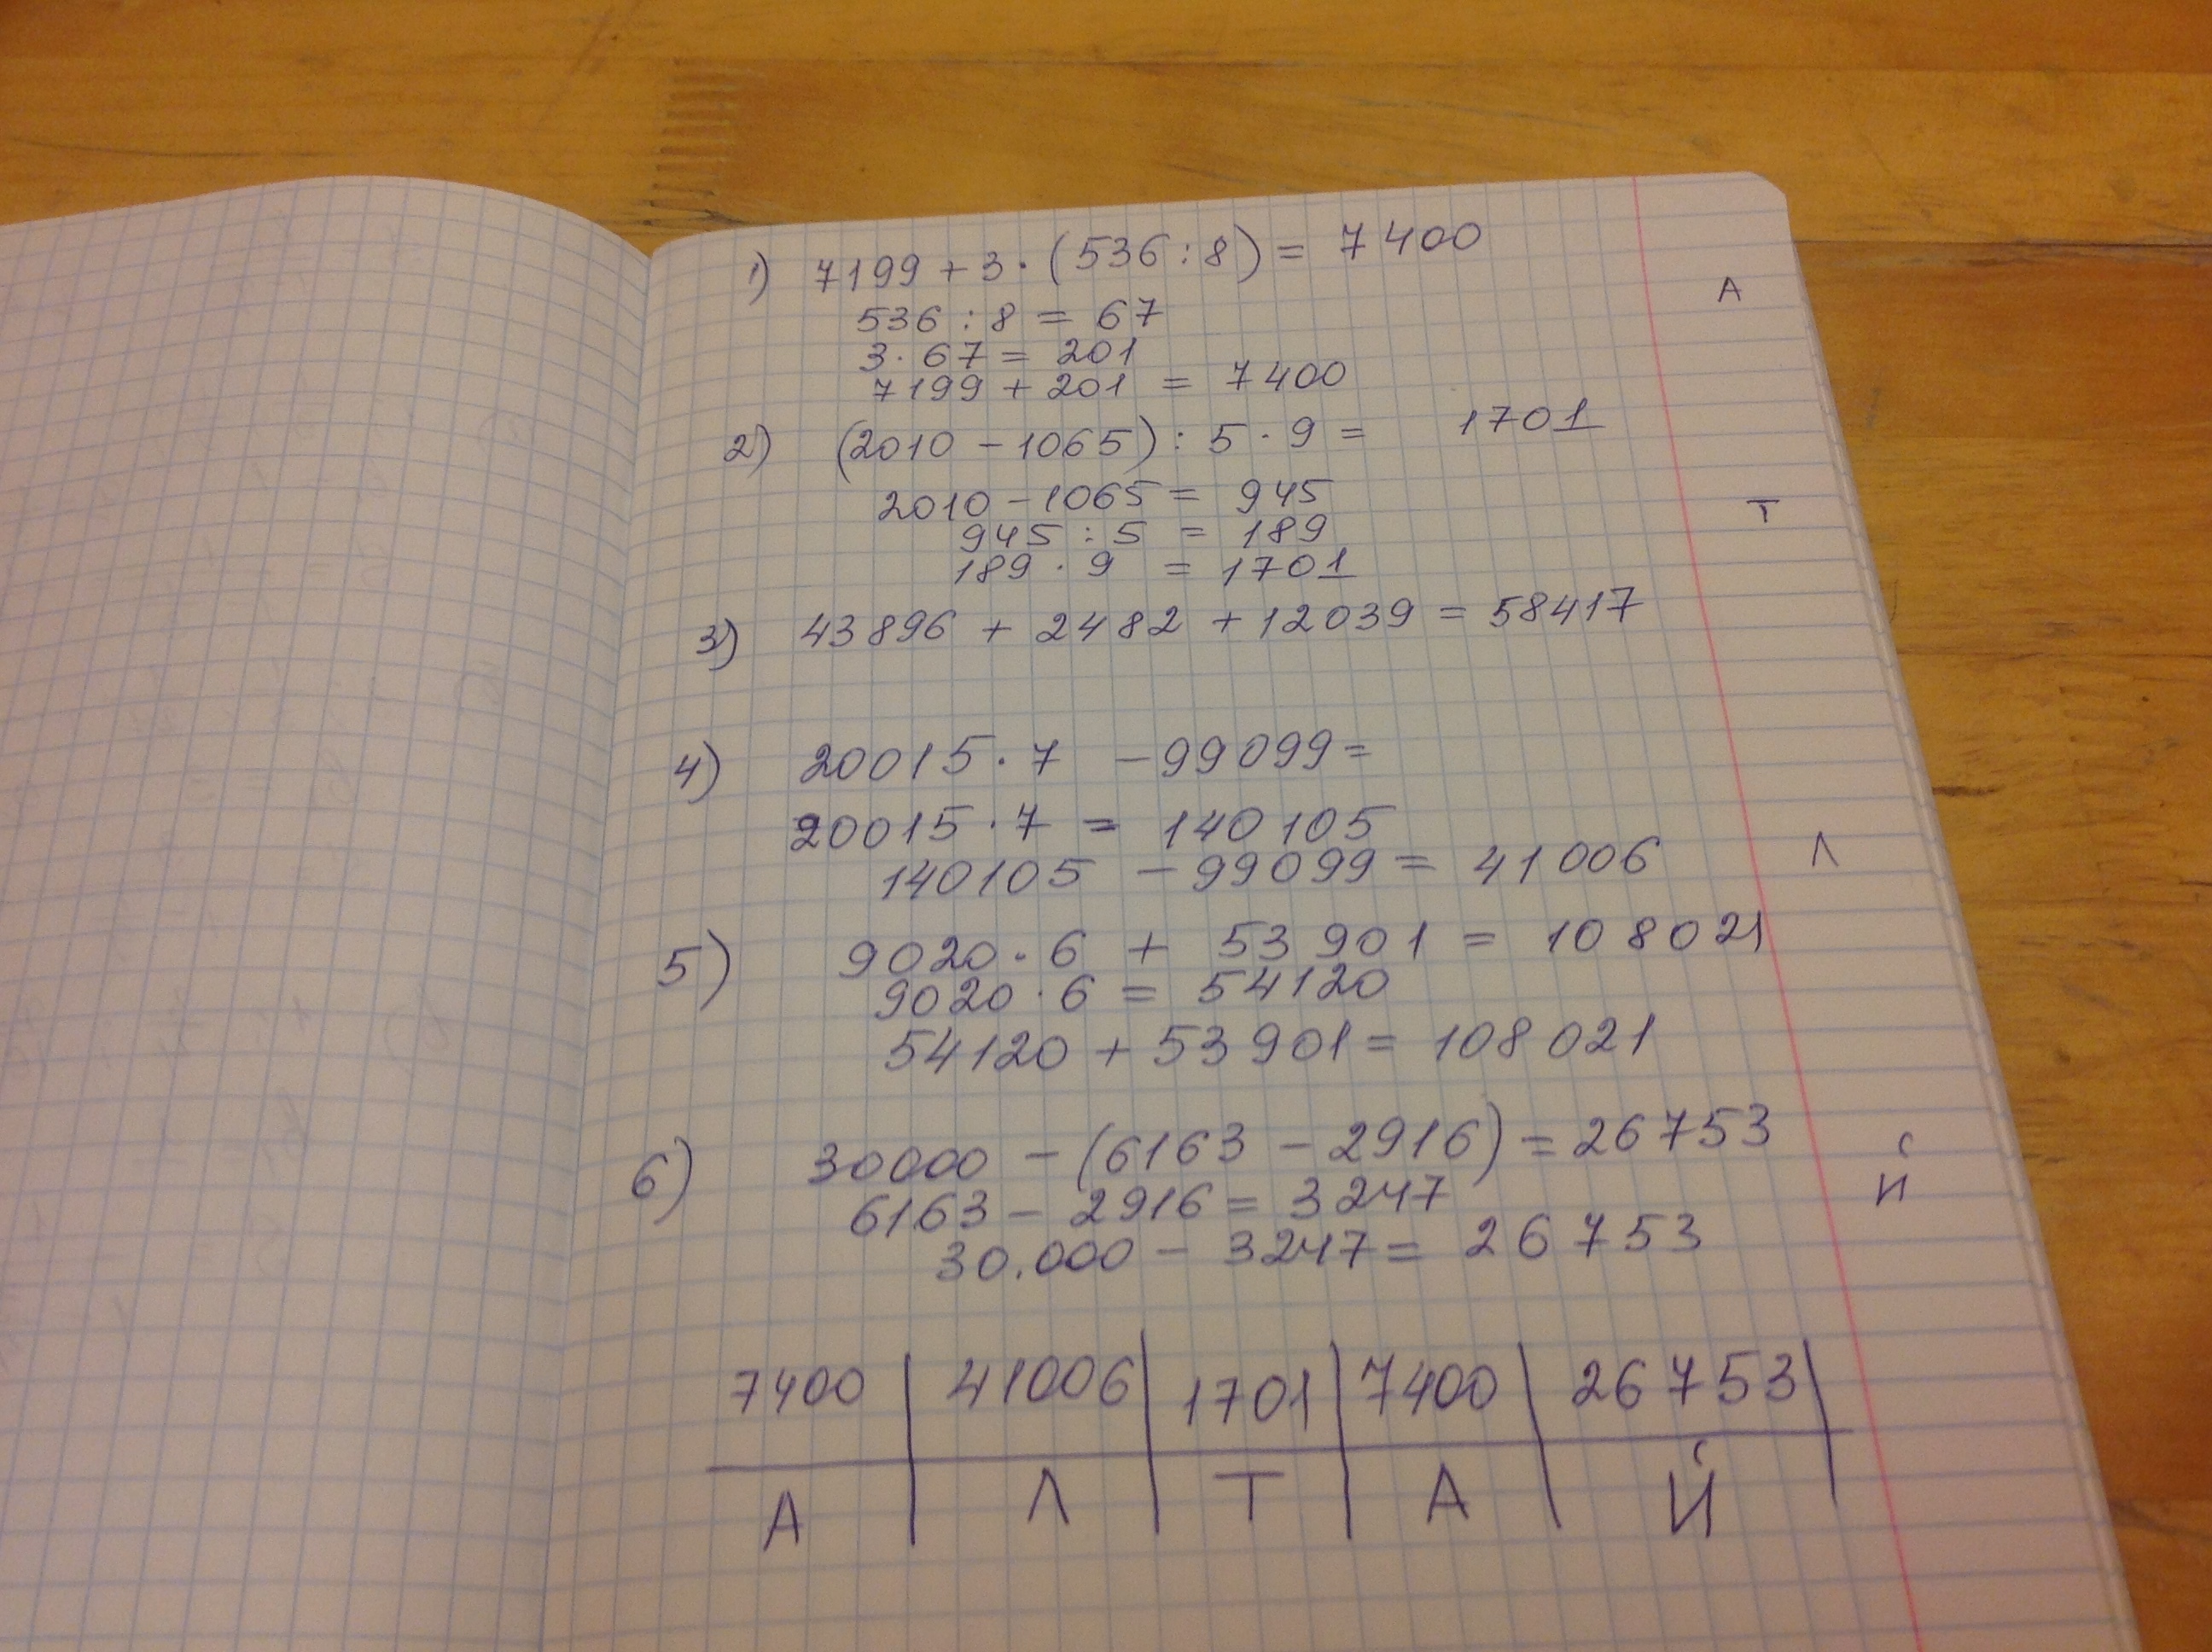 1) 7199 + 3 · (536 : 8) = 7400
А
536 : 8 = 67
3 · 67 = 201
7199 + 201 = 7400
2) (2010 - 1065) : 5 · 9 = 1701
2010 - 1065 = 945
Т
945 : 5 = 189
189 · 9 = 1701
3) 43896 + 2482 + 12039 = 58417
4) 20015 · 7 - 99099 =
20015 · 7 = 140105
140105 - 99099 = 41006
Л
5) 9020 · 6 + 53901 = 108021
9020 · 6 = 54120
54120 + 53901 = 108021
6) 30000 - (6163 - 2916) = 26753
Й
6163 - 2916 = 3247
30.000 - 3247 = 26753
7400 | 41006 | 1701 | 7400 | 26753 |
А | Л | Т | А | Й |